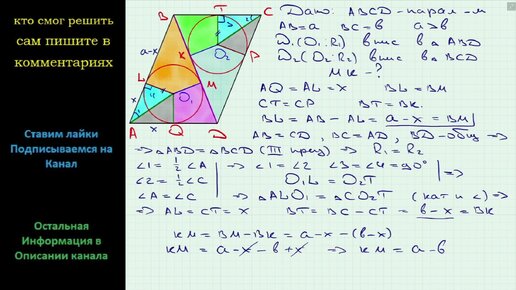 кто смог решить
сам пишите в
комментариях
Ставим лайки
Подписываемся на
Канал
Остальная
Информация в
Описании канала
B T C
a-x
K
O₂
P
L
M
x
O₁
A x Q D
Дано: ABCD - парал-м
AB=a BC=b a>b
W₁(O₁; R₁) впис в △ ABD
W₂(O₂; R₂) впис в △ BCD
MK - ?
AQ = AL = x BL = BM
CT = CP BT = BK.
BL = AB - AL = a - x = BM
AB = CD, BC = AD, BD - общ ⇒
⇒ △ABD = △BCD (III призн) ⇒ R₁ = R₂
∠1 = ½ ∠A ⇒ ∠1 = ∠2 ∠3 = ∠4 = 90°
∠2 = ½ ∠C O₁L = O₂T
∠A = ∠C ⇒ △ALO₁ = △CO₂T (кат и ∠) ⇒
⇒ AL = CT = x BT = BC - CT = b - x = BK
KM = BM - BK = a - x - (b - x)
KM = a - x - b + x ⇒ KM = a - b